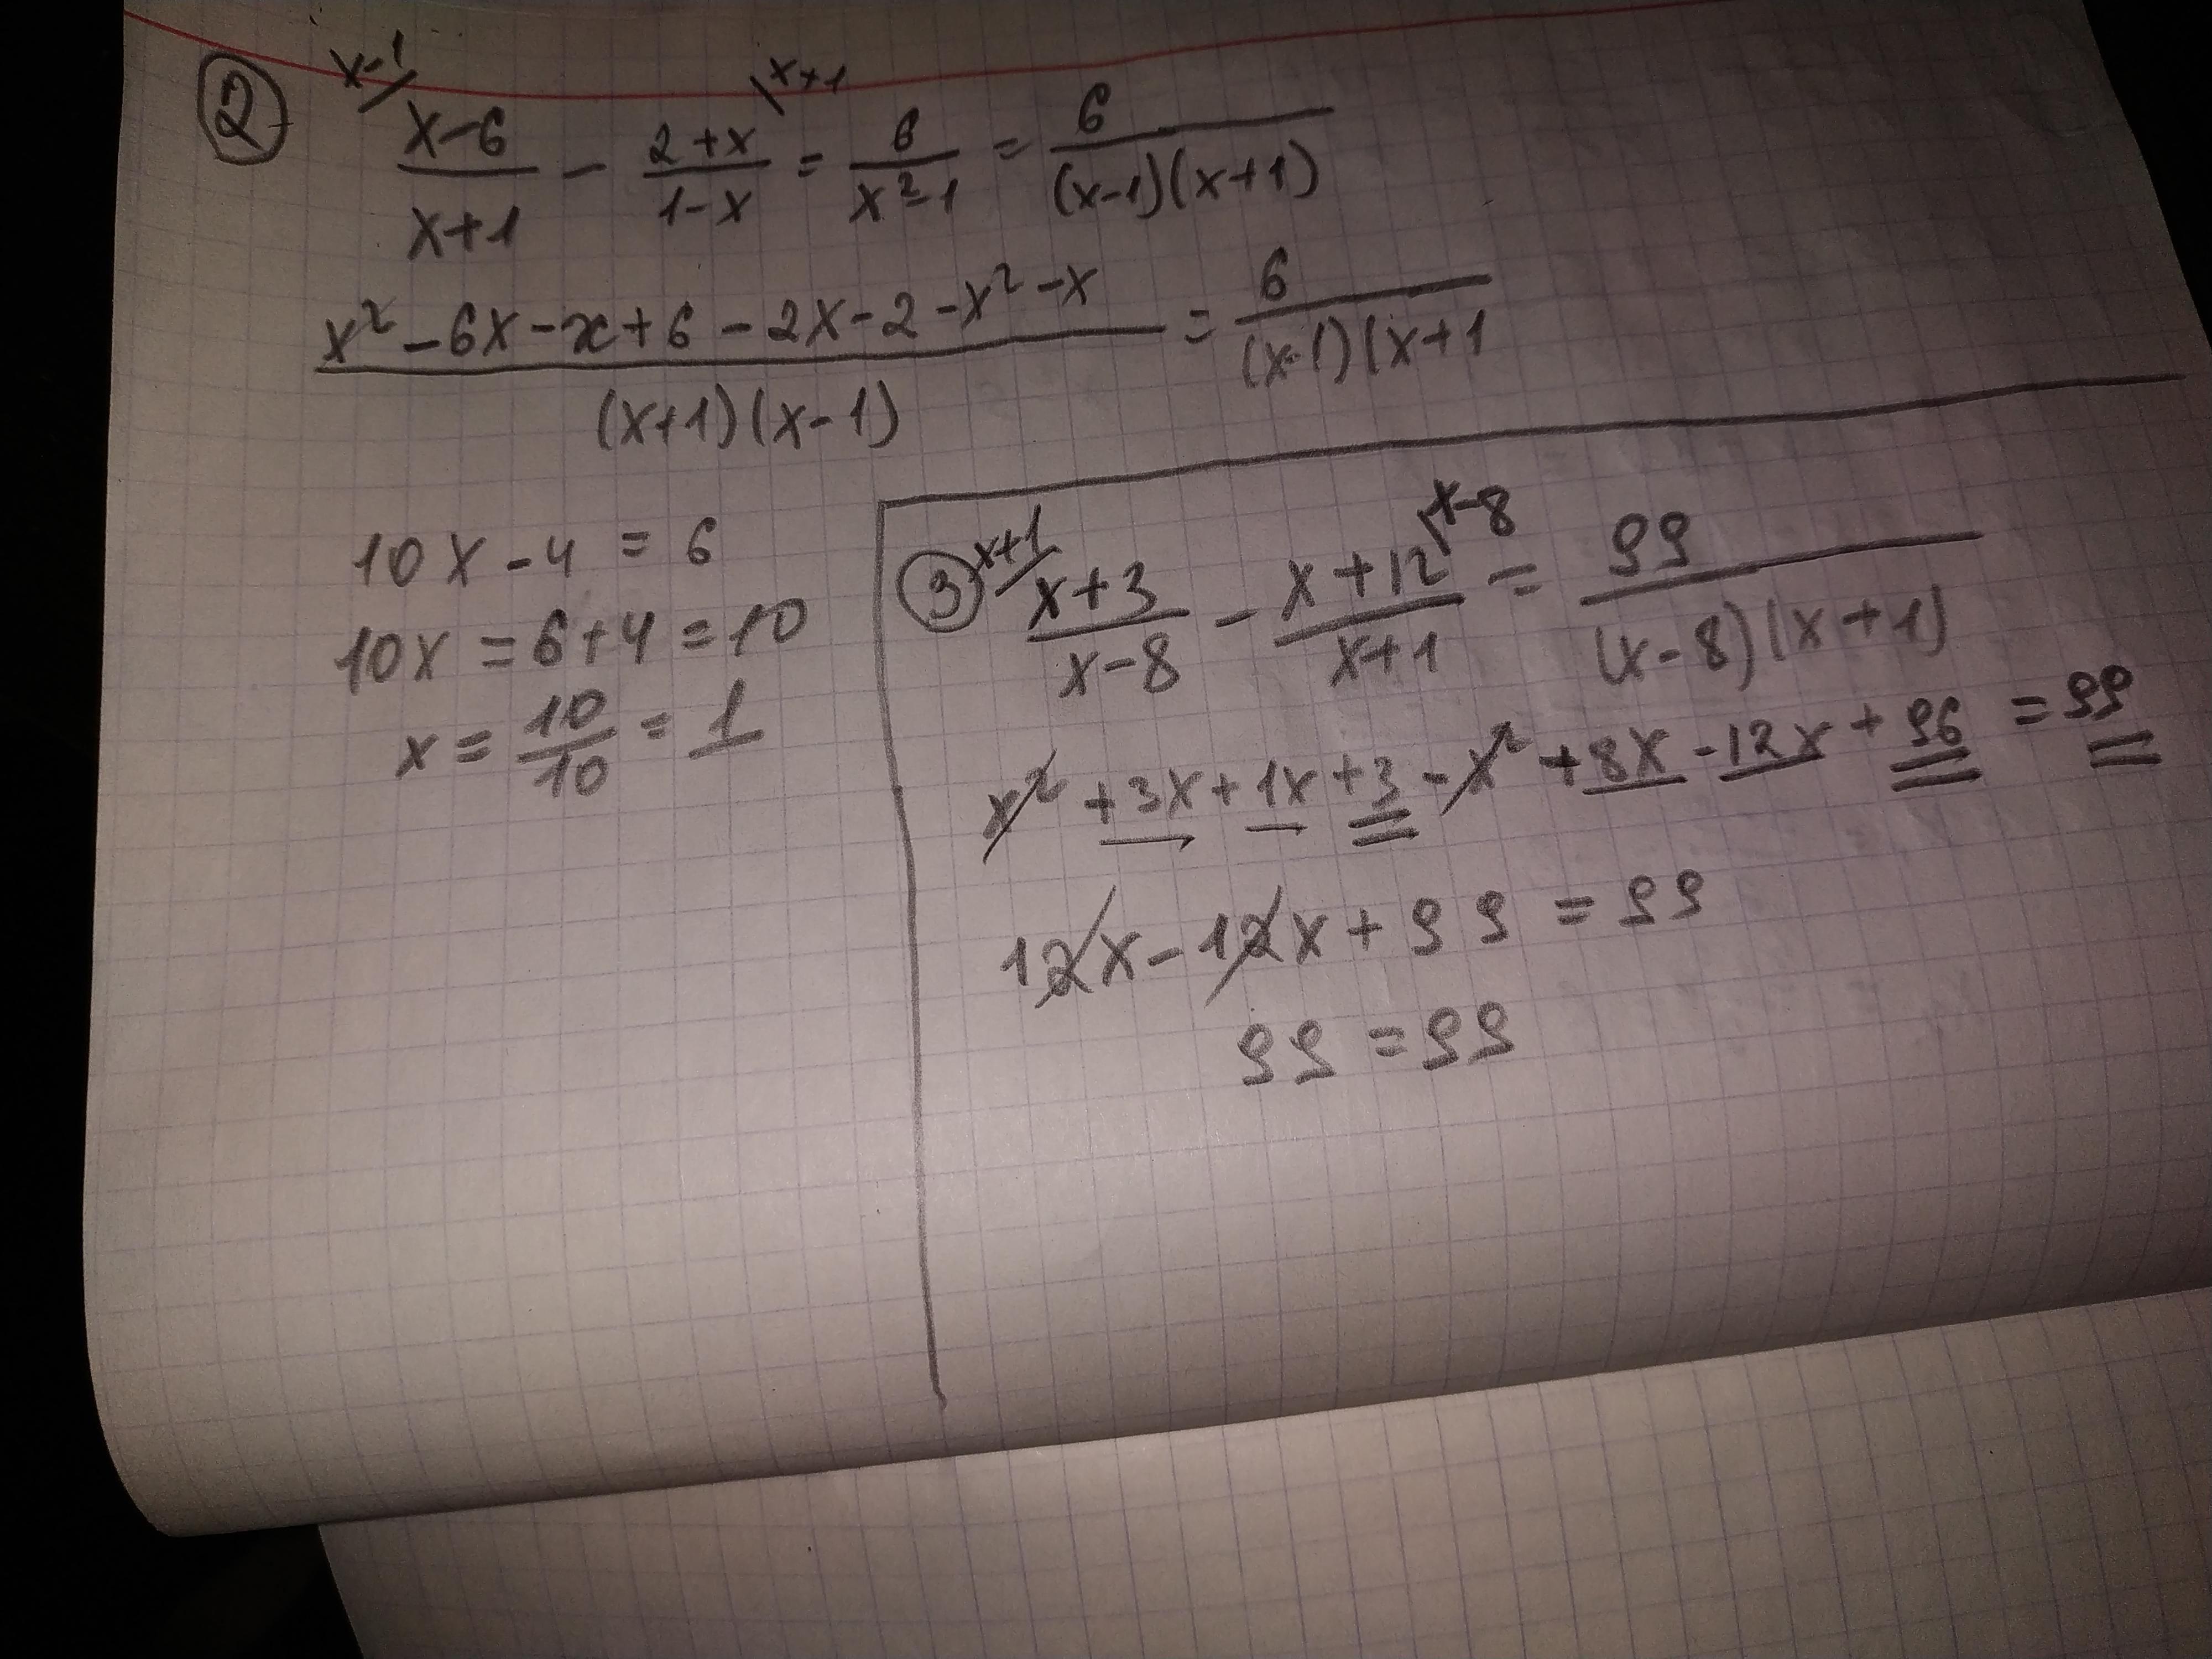 ② x-1/ \x+1
x-6/x+1 - 2+x/1-x = 6/x²-1 = 6/(x-1)(x+1)
x²-6x-x+6-2x-2-x²-x/(x+1)(x-1) = 6/(x-1)(x+1
10x-4 = 6
10x = 6+4 = 10
x = 10/10 = 1
③ x+1/ \x-8
x+3/x-8 - x+12/x+1 = 99/(x-8)(x+1)
x² +3x+1x+3-x²+8x-12x+96 = 99
12x-12x+99 = 99
99 = 99